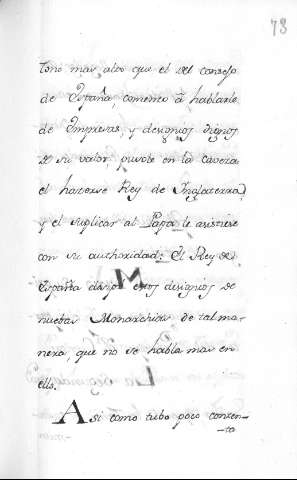 73
tono mas alto que el del consejo
de España, comenzo â hablarle
de Empresas, y designios dignos
de su valor, pusole en la caveza
el hacerse Rey de Inglaterra,
y el suplicar al Papa le asistiese
con su authoridad: El Rey de
España disipo estos designios de
nuebas Monarchias de tal ma-
nera, que no se hablo mas en
ello.
Asi como tubo poco conten-
-to